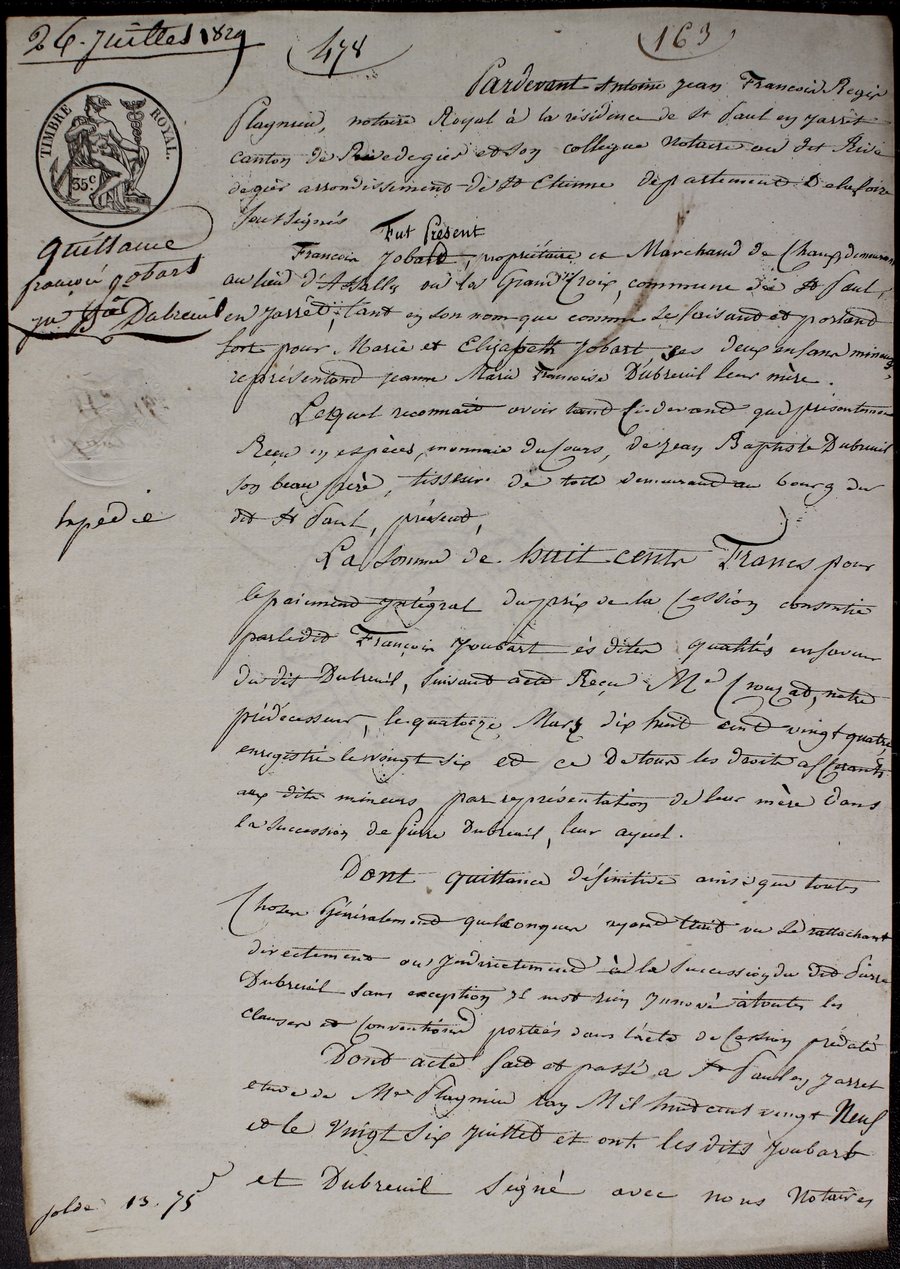 26. juillet 1829
478
163
TIMBRE ROYAL.
35c
quittance
françois jobart
jn Bte Dubreuil
Expédié
solde 13. 75
Pardevant Antoine Jean François Regis
Playnieu, notaire Royal à la résidence de St Paul en jarret
canton de Rivedegier et son collegue Notaire au dit Rive
degier arrondissement de St Etienne département De la loire
soussignés
Fut Présent
François Jobard, propriétaire et Marchand de Chaux demeurant
au lieu d' ou la Grand'Croix, commune de St Paul
en jarrêt, tant en son nom que comme se faisand et portand
fort pour Marie et Elizabeth Jobart, ses deux enfans mineurs,
représentand jeanne Marie Françoise Dubreuil leur mère.
Lequel reconnait avoir tand ci-devand que présentement
Reçu en espèces, monnaie du cours, de jean Baptiste Dubreuil
son beau frère, tisseur de toile demeurand au bourg du
dit St Paul, présend,
La somme de huit cents Francs pour
le paiemend intégral du prix de la Cession consentie
par ledit François Joubart ès dites qualités en faveur
du dit Dubreuil, suivant acte Reçu Me Crouzat, notre
prédécesseur, le quatorze Mars dix huit cend vingt quatre,
enregistré le vingt six et ce De tous les droits afférants
aux dits mineurs par représentation de leur mère dans
la succession de Pierre Dubreuil, leur ayeul.
Dont quittance définitive ainsi que toutes
Choses Généralemend quelconques ayand trait ou se rattachant
directement ou jndirectemend à la succession du dit Pierre
Dubreuil sans exception jl n'est rien jnnové à toutes les
clauses et Conventions portées dans l'acte de Cession prédaté
Dont acte faid et passé a St Paul en jarret
etude de Me Playnieu l'an Mil huit cent vingt Neuf
et le vingt six juillet et ont les dits Joubart
et Dubreuil signé avec nous Notaires